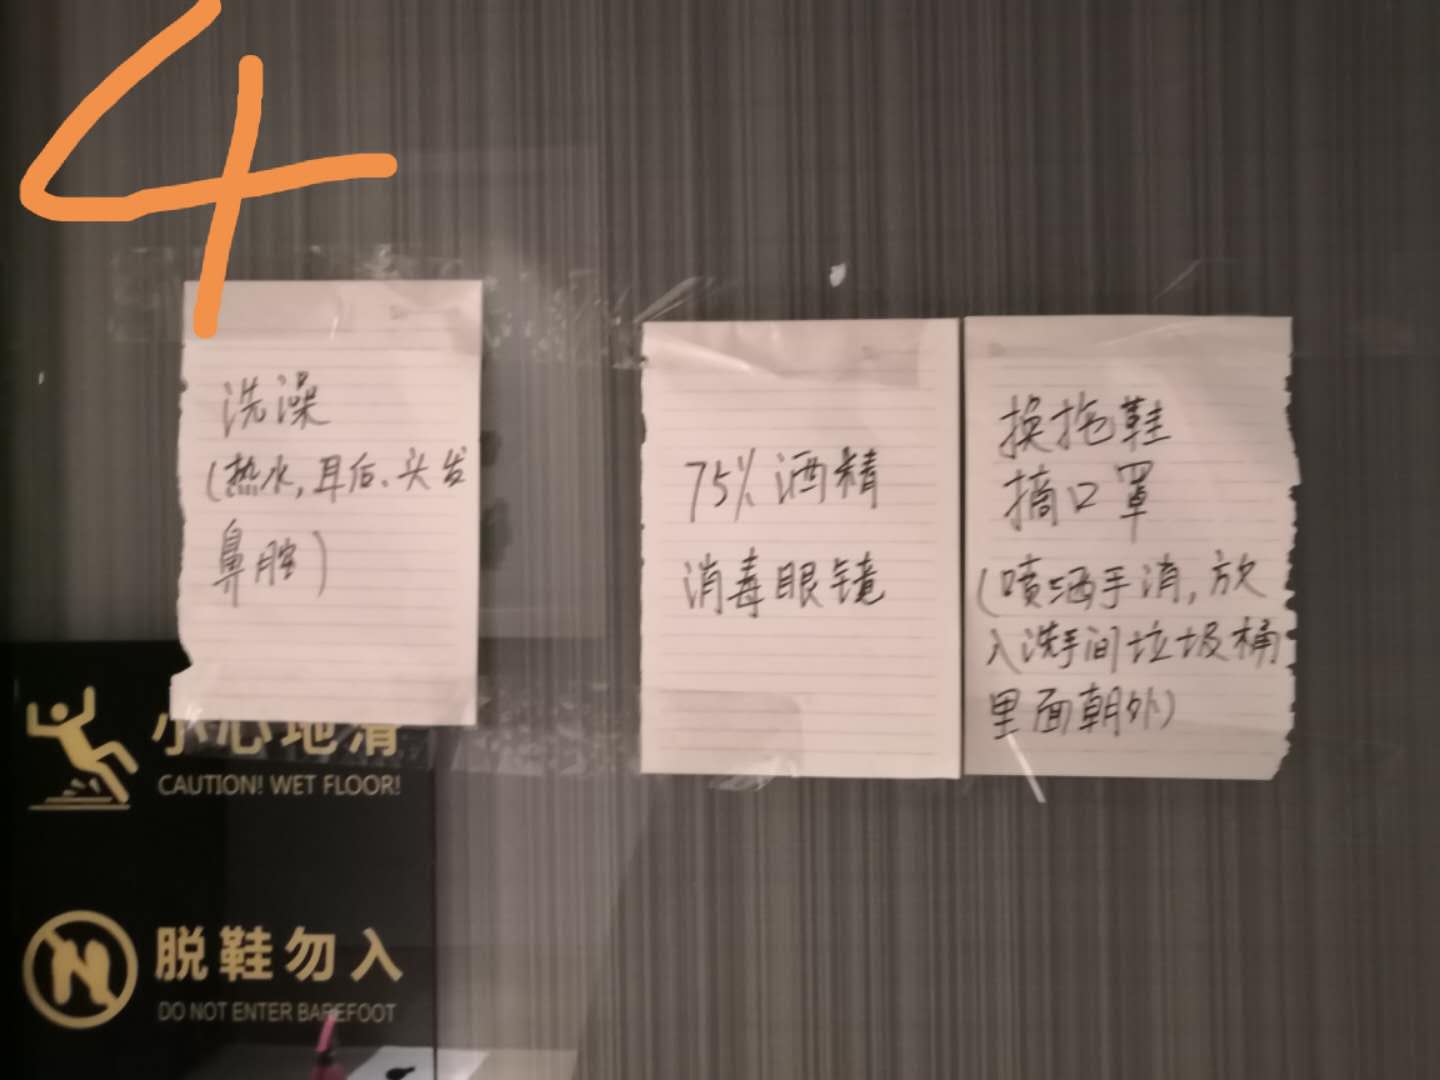 4
洗澡
(热水,耳后、头发
鼻腔)
75%酒精
消毒眼镜
换拖鞋
摘口罩
(喷洒手消,放
入洗手间垃圾桶
里面朝外)
小心地滑
CAUTION! WET FLOOR!
脱鞋勿入
DO NOT ENTER BAREFOOT